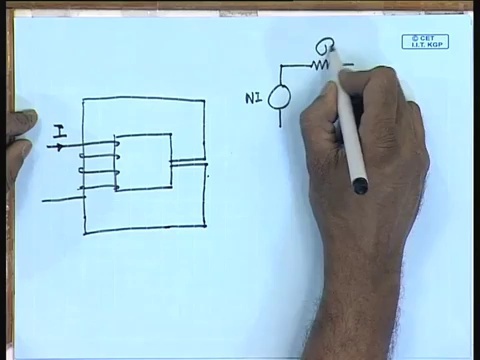 © CET
I.I.T. KGP
I
NI